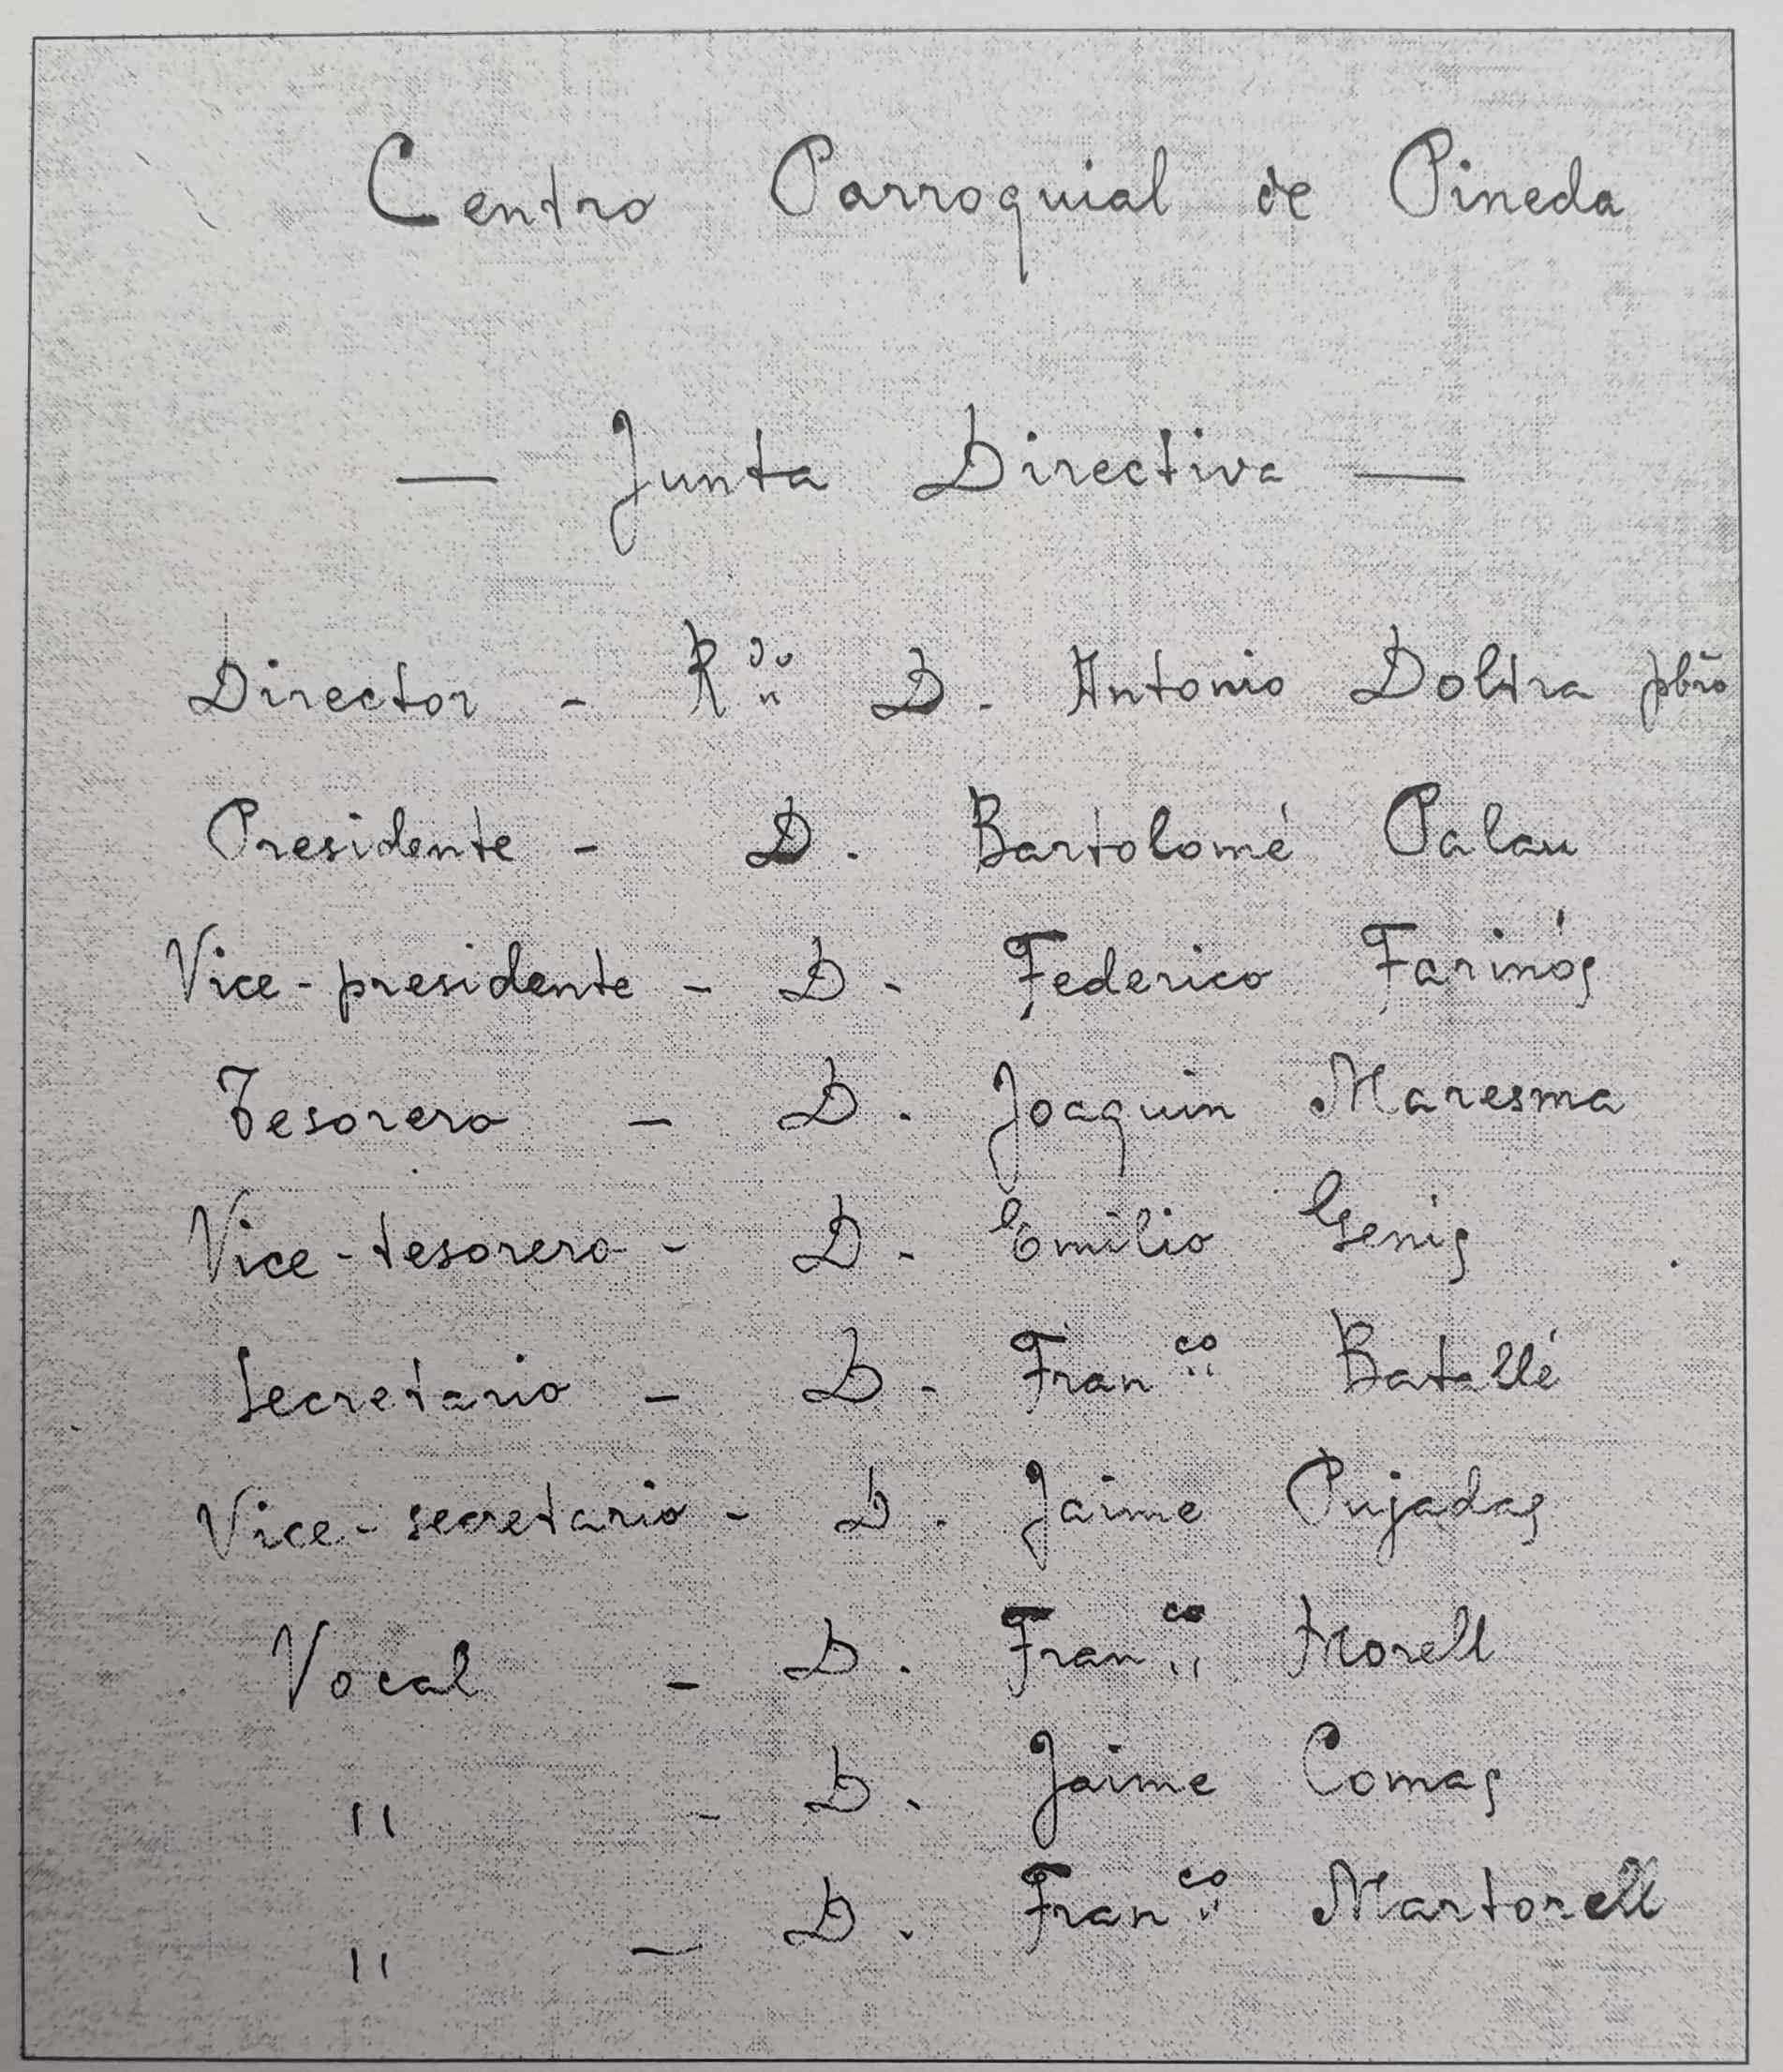 Centro Parroquial de Pineda
— Junta Directiva —
Director - Rdo D. Antonio Doltra pbro
Presidente - D. Bartolomé Palau
Vice-presidente - D. Federico Farinós
Tesorero - D. Joaquin Maresma
Vice-tesorero - D. Emilio Genis
Secretario - D. Franco Batallé
Vice-secretario - D. Jaime Pujadas
Vocal - D. Franco Morell
" - D. Jaime Comas
" - D. Franco Martorell